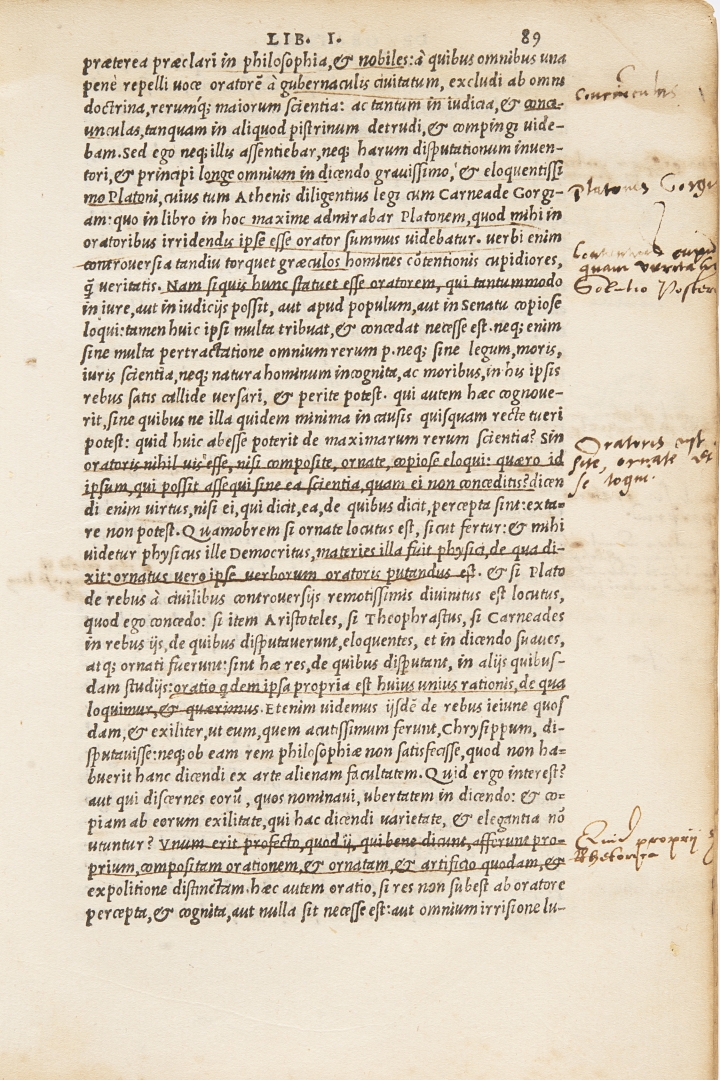 LIB. I. 89
præterea præclari in philosophia, & nobiles: à quibus omnibus una
penè repelli uoce oratorē à gubernaculis ciuitatum, excludi ab omni
doctrina, rerumq; maiorum scientia: ac tantum in iudicia, & conci-
unculas, tanquam in aliquod pistrinum detrudi, & compingi uide-
bam. Sed ego neq; illis assentiebar, neq; harum disputationum inuen-
tori, & principi longe omnium in dicendo grauissimo, & eloquentissi
mo Platoni, cuius tum Athenis diligentius legi cum Carneade Gorgi-
am: quo in libro in hoc maxime admirabar Platonem, quod mihi in
oratoribus irridendis ipse esse orator summus uidebatur. uerbi enim
controuersia tandiu torquet græculos homines cōtentionis cupidiores,
q̃ ueritatis. Nam si quis hunc statuet esse oratorem, qui tantummodo
in iure, aut in iudicijs possit, aut apud populum, aut in Senatu copiose
loqui: tamen huic ipsi multa tribuat, & concedat necesse est. neq; enim
sine multa pertractatione omnium rerum p. neq; sine legum, moris,
iuris scientia, neq; natura hominum incognita, ac moribus, in his ipsis
rebus satis callide uersari, & perite potest. qui autem hæc cognoue-
rit, sine quibus ne illa quidem minima in causis quisquam recte tueri
potest: quid huic abesse poterit de maximarum rerum scientia? Sin
oratoris nihil uis esse, nisi composite, ornate, copiose eloqui: quæro id
ipsum, qui possit assequi sine ea scientia, quam ei non conceditis? dicen
di enim uirtus, nisi ei, qui dicit, ea, de quibus dicit, percepta sint: exta-
re non potest. Quamobrem si ornate locutus est, sicut fertur: & mihi
uidetur physicus ille Democritus, materies illa fuit physici, de qua di-
xit: ornatus uero ipse uerborum oratoris putandus est. & si Plato
de rebus à ciuilibus controuersijs remotissimis diuinitus est locutus,
quod ego concedo: si item Aristoteles, si Theophrastus, si Carneades
in rebus ijs, de quibus disputauerunt, eloquentes, et in dicendo suaues,
atq; ornati fuerunt: sint hæ res, de quibus disputant, in alijs quibus-
dam studijs: oratio q̃dem ipsa propria est huius unius rationis, de qua
loquimur, & quærimus. Etenim uidemus ijsdē de rebus ieiune quos
dam, & exiliter, ut eum, quem acutissimum ferunt, Chrysippum, di-
sputauisse: neq; ob eam rem philosophiæ non satisfecisse, quod non ha-
buerit hanc dicendi ex arte alienam facultatem. Quid ergo interest?
aut qui discernes eorū, quos nominaui, ubertatem in dicendo: & co-
piam ab eorum exilitate, qui hac dicendi uarietate, & elegantia nō
utuntur? Vnum erit profecto, quod ij, qui bene dicunt, afferunt pro-
prium, compositam orationem, & ornatam, & artificio quodam, &
expolitione distinctam. hæc autem oratio, si res non subest ab oratore
percepta, & cognita, aut nulla sit necesse est: aut omnium irrisione lu-
Platonis Gorgi
quam veritatis
Oratoris est
site, ornate et
se loqui.
Quid proprij
Rhetorica